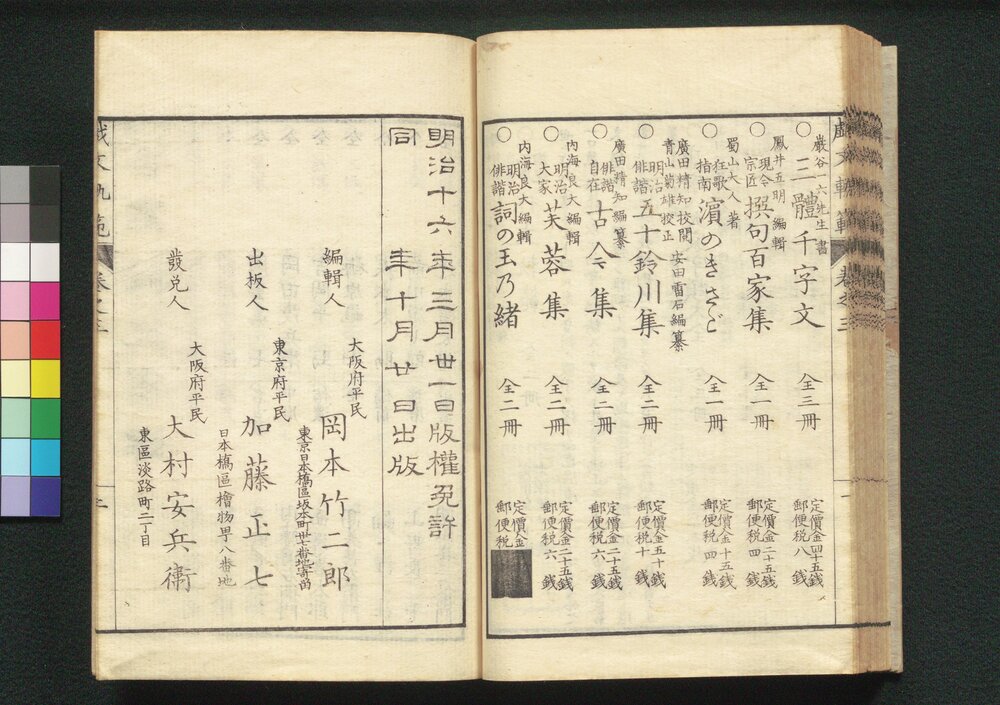 戯文軌範 巻之三
一
巌谷一六先生書
○三體千字文 全三冊 定價金四十五銭 郵便税八銭
鳳井五明編輯
○現今宗匠撰句百家集 全一冊 定價金二十五銭 郵便税四銭
蜀山大人著
○狂歌指南濱のきさご 全一冊 定價金十五銭 郵便税四銭
廣田精知校閲
青山菊雄校正
安田雷石編纂
○明治俳諧五十鈴川集 全二冊 定價金五十銭 郵便税十銭
廣田精知編纂
○俳諧自在古今集 全二冊 定價金二十五銭 郵便税六銭
内海良大編輯
○明治大家芙蓉集 全二冊 定價金二十五銭 郵便税六銭
内海良大編輯
○明治俳諧詞の玉乃緒 全二冊 定價金 郵便税
明治十六年三月丗一日版權免許
同年十月廿日出版
大阪府平民
編輯人 岡本竹二郎
東京日本橋區坂本町丗七番地寄留
東京府平民
出板人 加藤正七
日本橋區檜物町八番地
大阪府平民
發兌人 大村安兵衛
東區淡路町二丁目
戯文軌範 巻之三